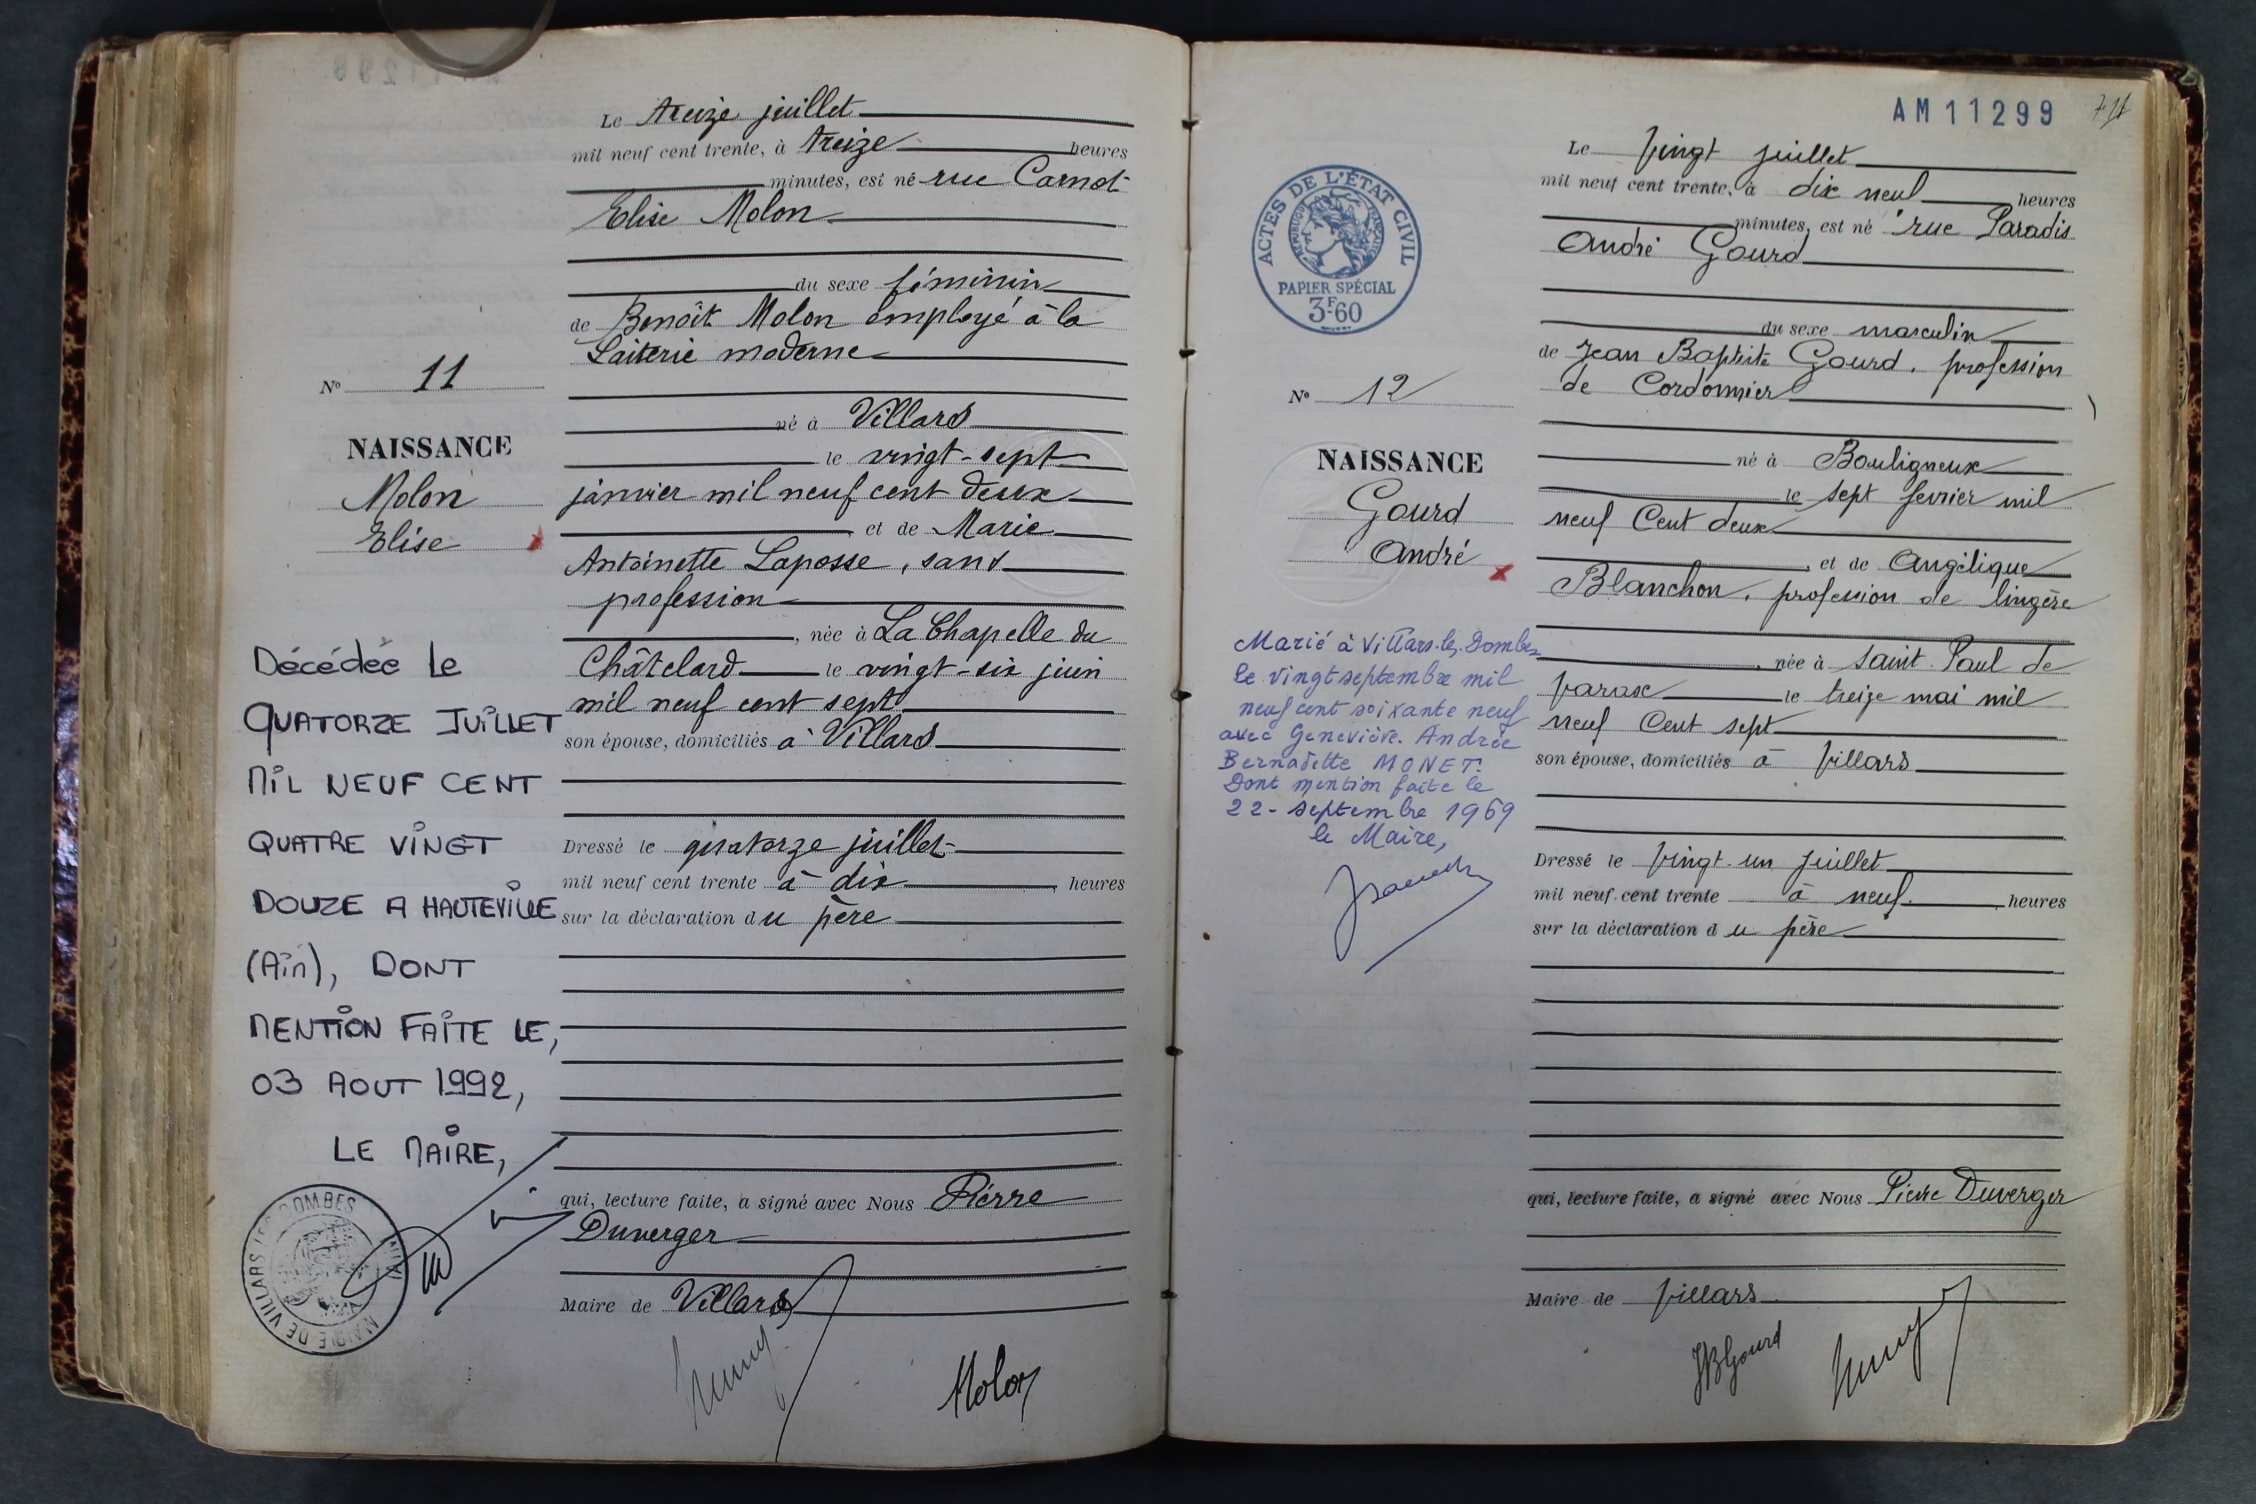 Le treize juillet
mil neuf cent trente, à treize heures
minutes, est né rue Carnot
Elise Molon
du sexe féminin
de Benoît Molon employé à la
Laiterie moderne
né à Villars
le vingt-sept
janvier mil neuf cent deux
et de Marie
Antoinette Laposse, sans
profession
, née à La Chapelle du
Châtelard le vingt-six juin
mil neuf cent sept
son épouse, domiciliés à Villars
Dressé le quatorze juillet
mil neuf cent trente à dix heures
sur la déclaration du père
qui, lecture faite, a signé avec Nous Pierre
Duverger
Maire de Villars
Molon
No 11
NAISSANCE
Molon
Elise
Décédée le
QUATORZE JUILLET
MIL NEUF CENT
QUATRE VINGT
DOUZE A HAUTEVILLE
(Ain), DONT
MENTION FAITE LE,
03 AOUT 1992,
LE MAIRE,
MAIRIE DE VILLARS LES DOMBES
AM11299
ACTES DE L'ÉTAT CIVIL
RÉPUBLIQUE FRANÇAISE
PAPIER SPÉCIAL
3F60
Le vingt juillet
mil neuf cent trente, à dix neuf heures
minutes, est né rue Paradis
André Gourd
du sexe masculin
de Jean Baptiste Gourd, profession
de Cordonnier
né à Bouligneux
le sept fevrier mil
neuf Cent deux
, et de Angélique
Blanchon, profession de lingère
, née à Saint Paul de
Varax le treize mai mil
neuf Cent sept
son épouse, domiciliés à Villars
Dressé le vingt-un juillet
mil neuf cent trente à neuf heures
sur la déclaration du père
qui, lecture faite, a signé avec Nous Pierre Duverger
Maire de Villars
JBGourd
No 12
NAISSANCE
Gourd
André
Marié à Villars-les-Dombes
le vingt septembre mil
neuf cent soixante neuf
avec Geneviève Andrée
Bernadette MONET.
Dont mention faite le
22-septembre 1969
le Maire,